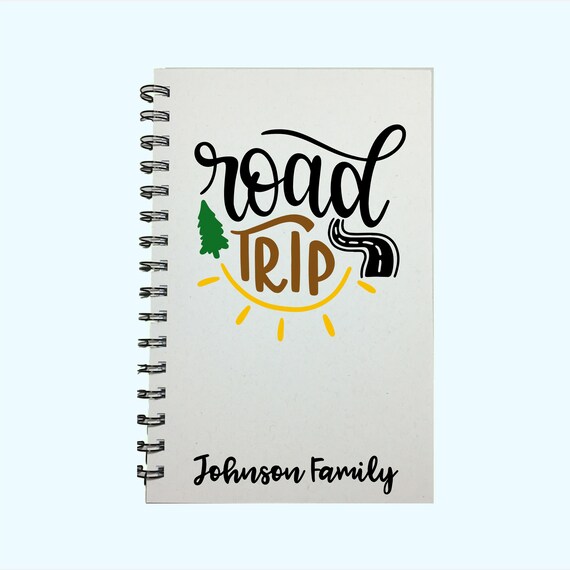 road
TRIP
Johnson Family